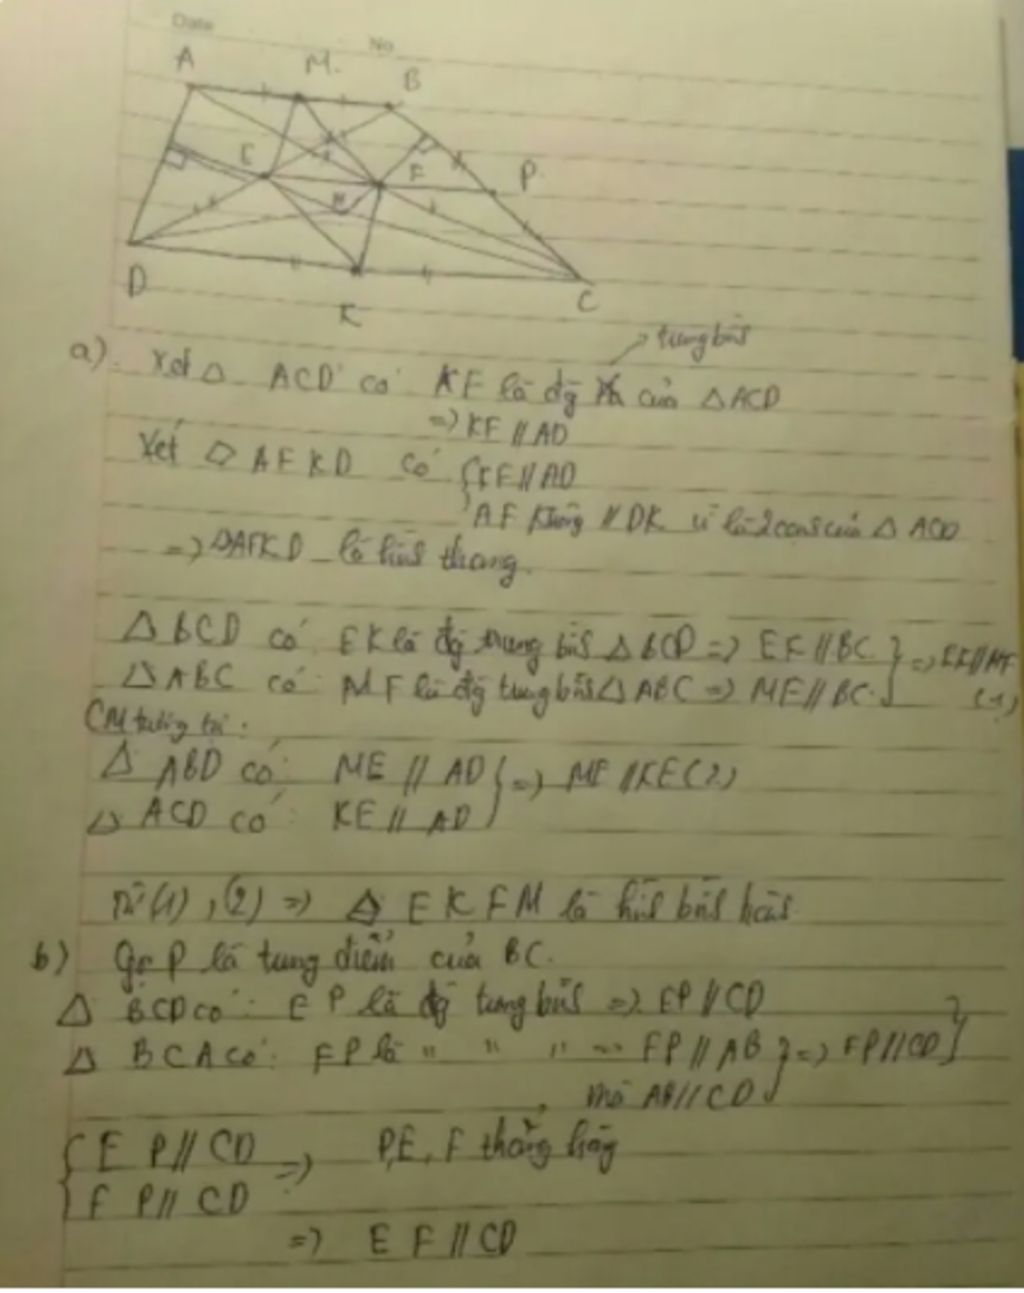 Date
No
A M. B
E F P
H
D K C
→ trung bình
a). Xét △ ACD có KF là đg của △ ACD
=> KF // AD
Xét AFKD có { KF // AD
AF không // DK vì là 2 cạnh của △ ACD
=> AFKD là hình thang.
△ BCD có EK là đg trung bình △ BCD => EK // BC } => EK // MF
△ ABC có: MF là đg trung bình △ ABC => MF // BC. (1)
CM tương tự:
△ ABD có: ME // AD } => MF // KE (2)
△ ACD có: KE // AD
Từ (1), (2) => EKFM là hình bình hành.
b) Gọi P là trung điểm của BC.
△ BCD có: EP là đg trung bình => EP // CD
△ BCA có: FP là " " " => FP // AB } => FP // CD }
mà AB // CD
{ E P // CD => P, E, F thẳng hàng
F P // CD
=> E F // CD